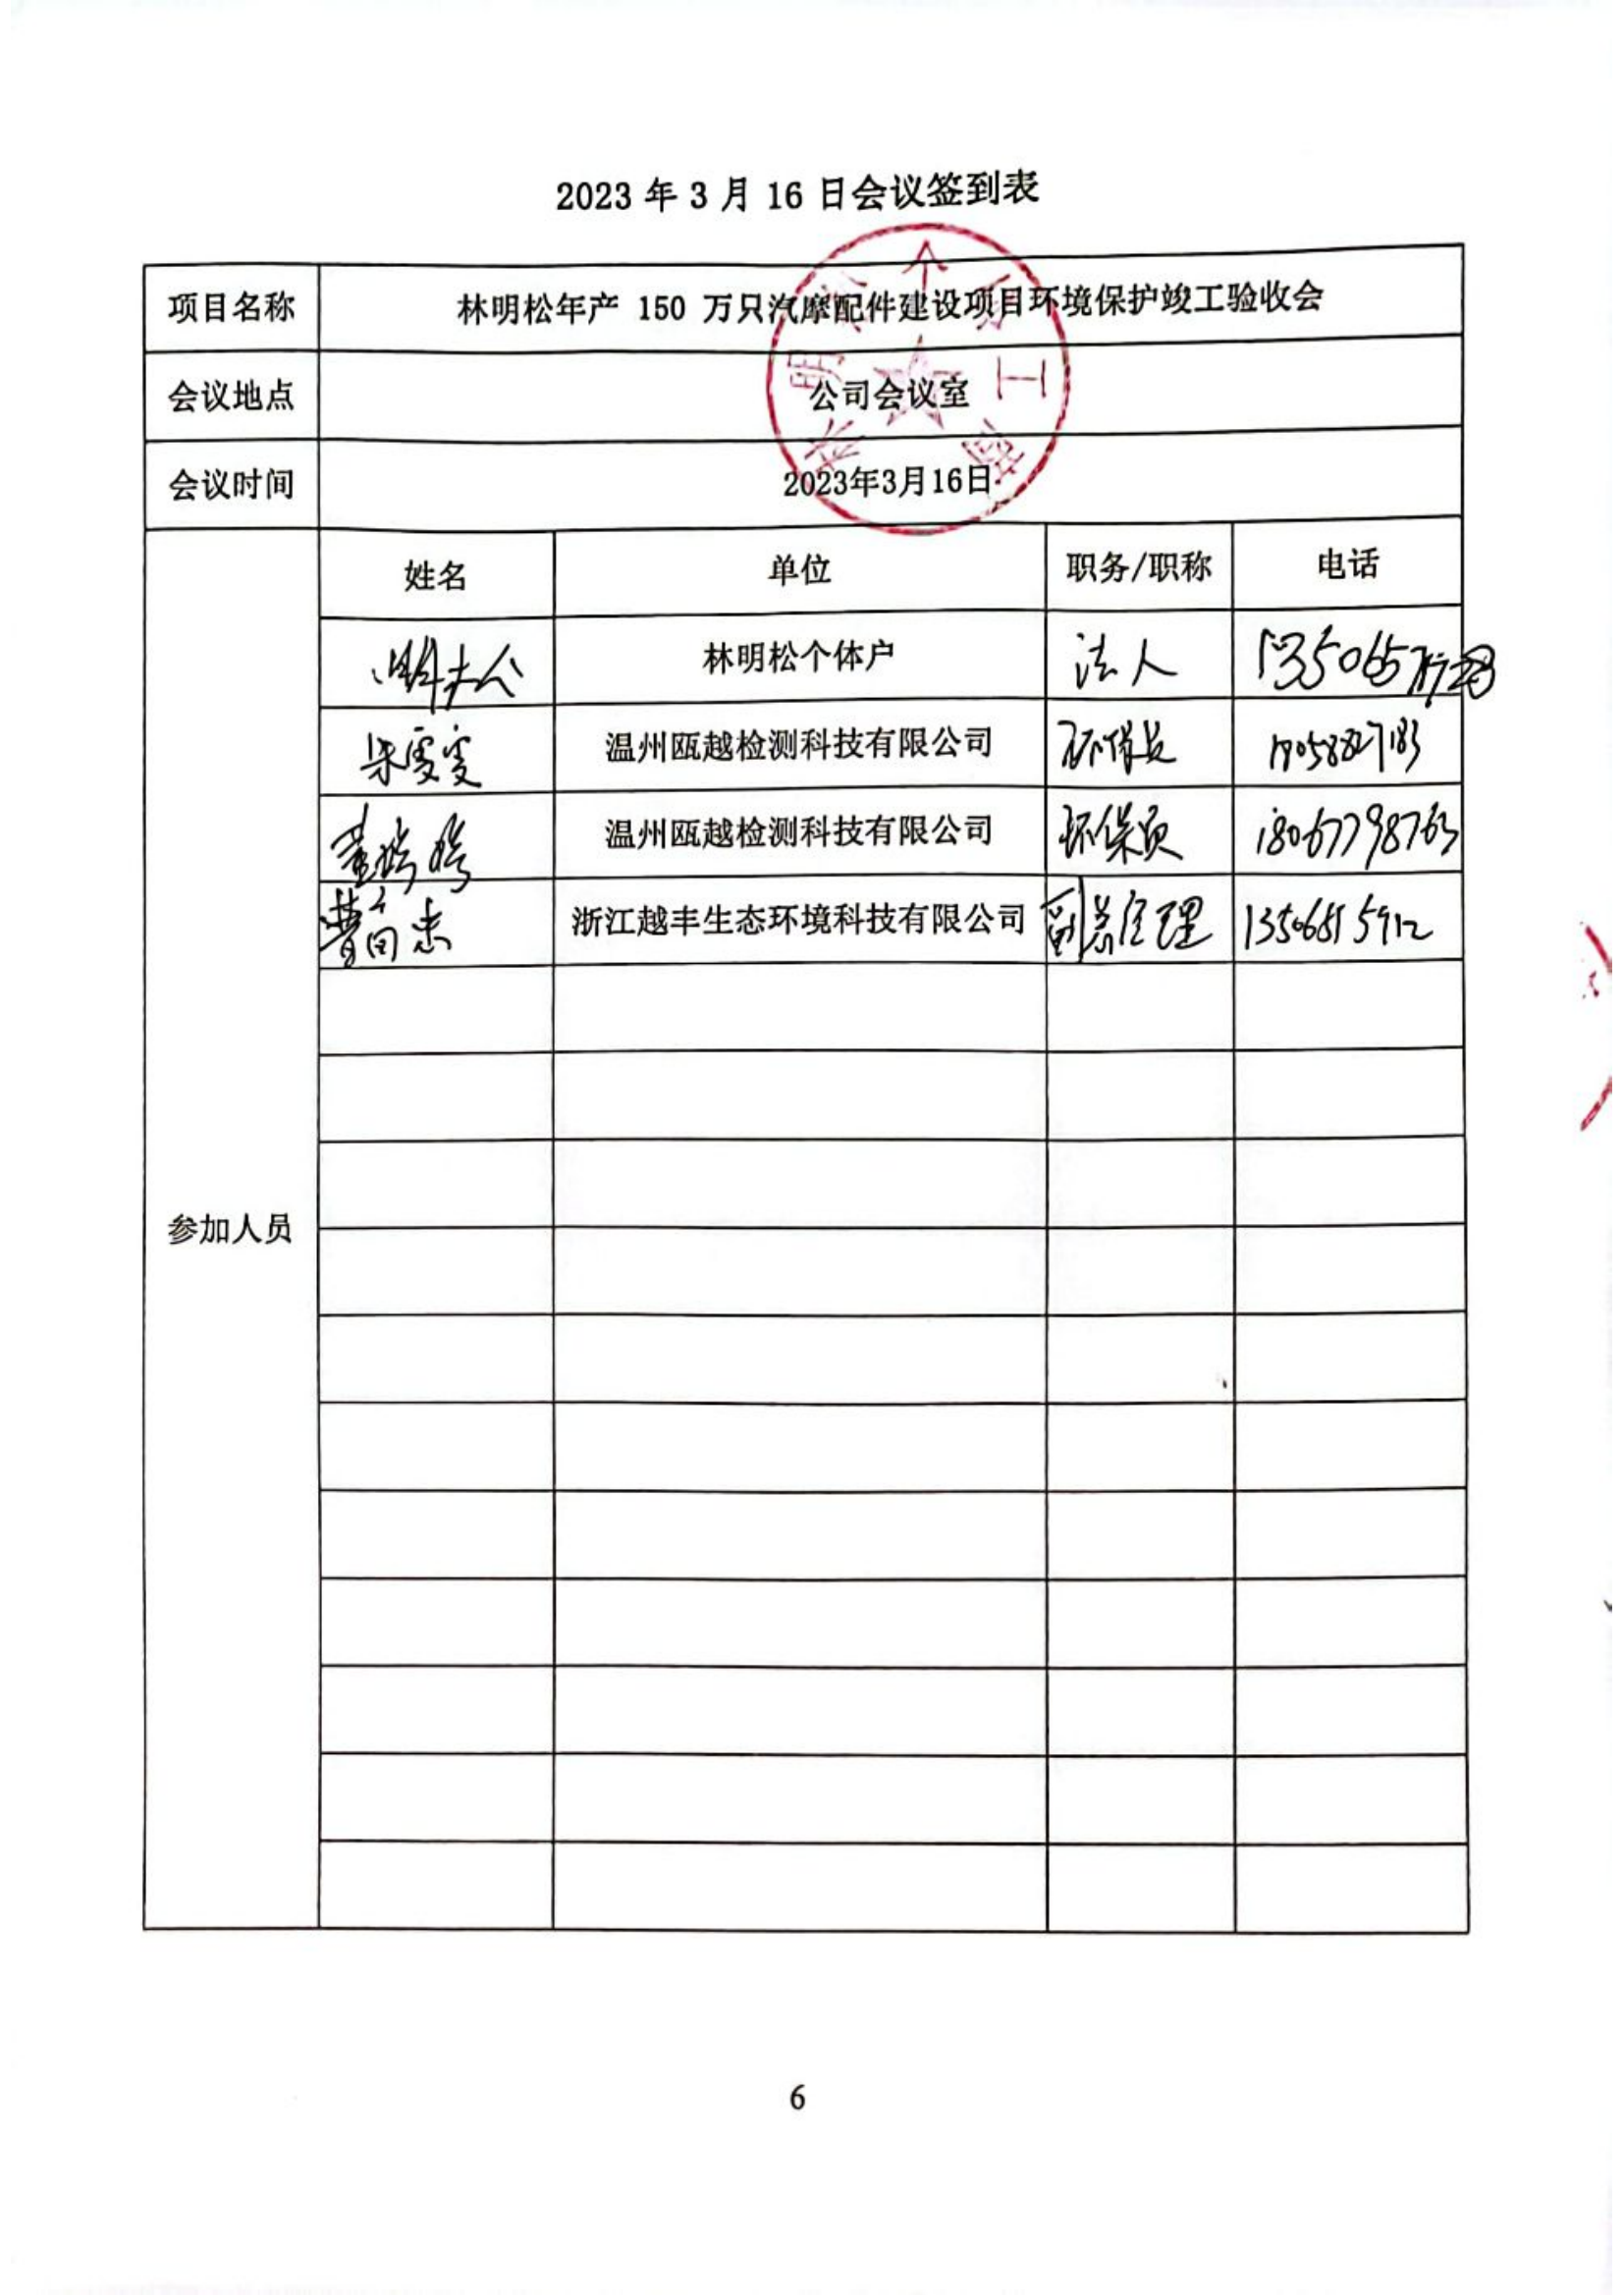 2023 年 3 月 16 日会议签到表
项目名称 林明松年产 150 万只汽摩配件建设项目环境保护竣工验收会
会议地点 公司会议室
会议时间 2023年3月16日
参加人员
姓名 单位 职务/职称 电话
林明松个体户 法人
温州瓯越检测科技有限公司
温州瓯越检测科技有限公司 环保员 18067798763
浙江越丰生态环境科技有限公司 副总经理
6